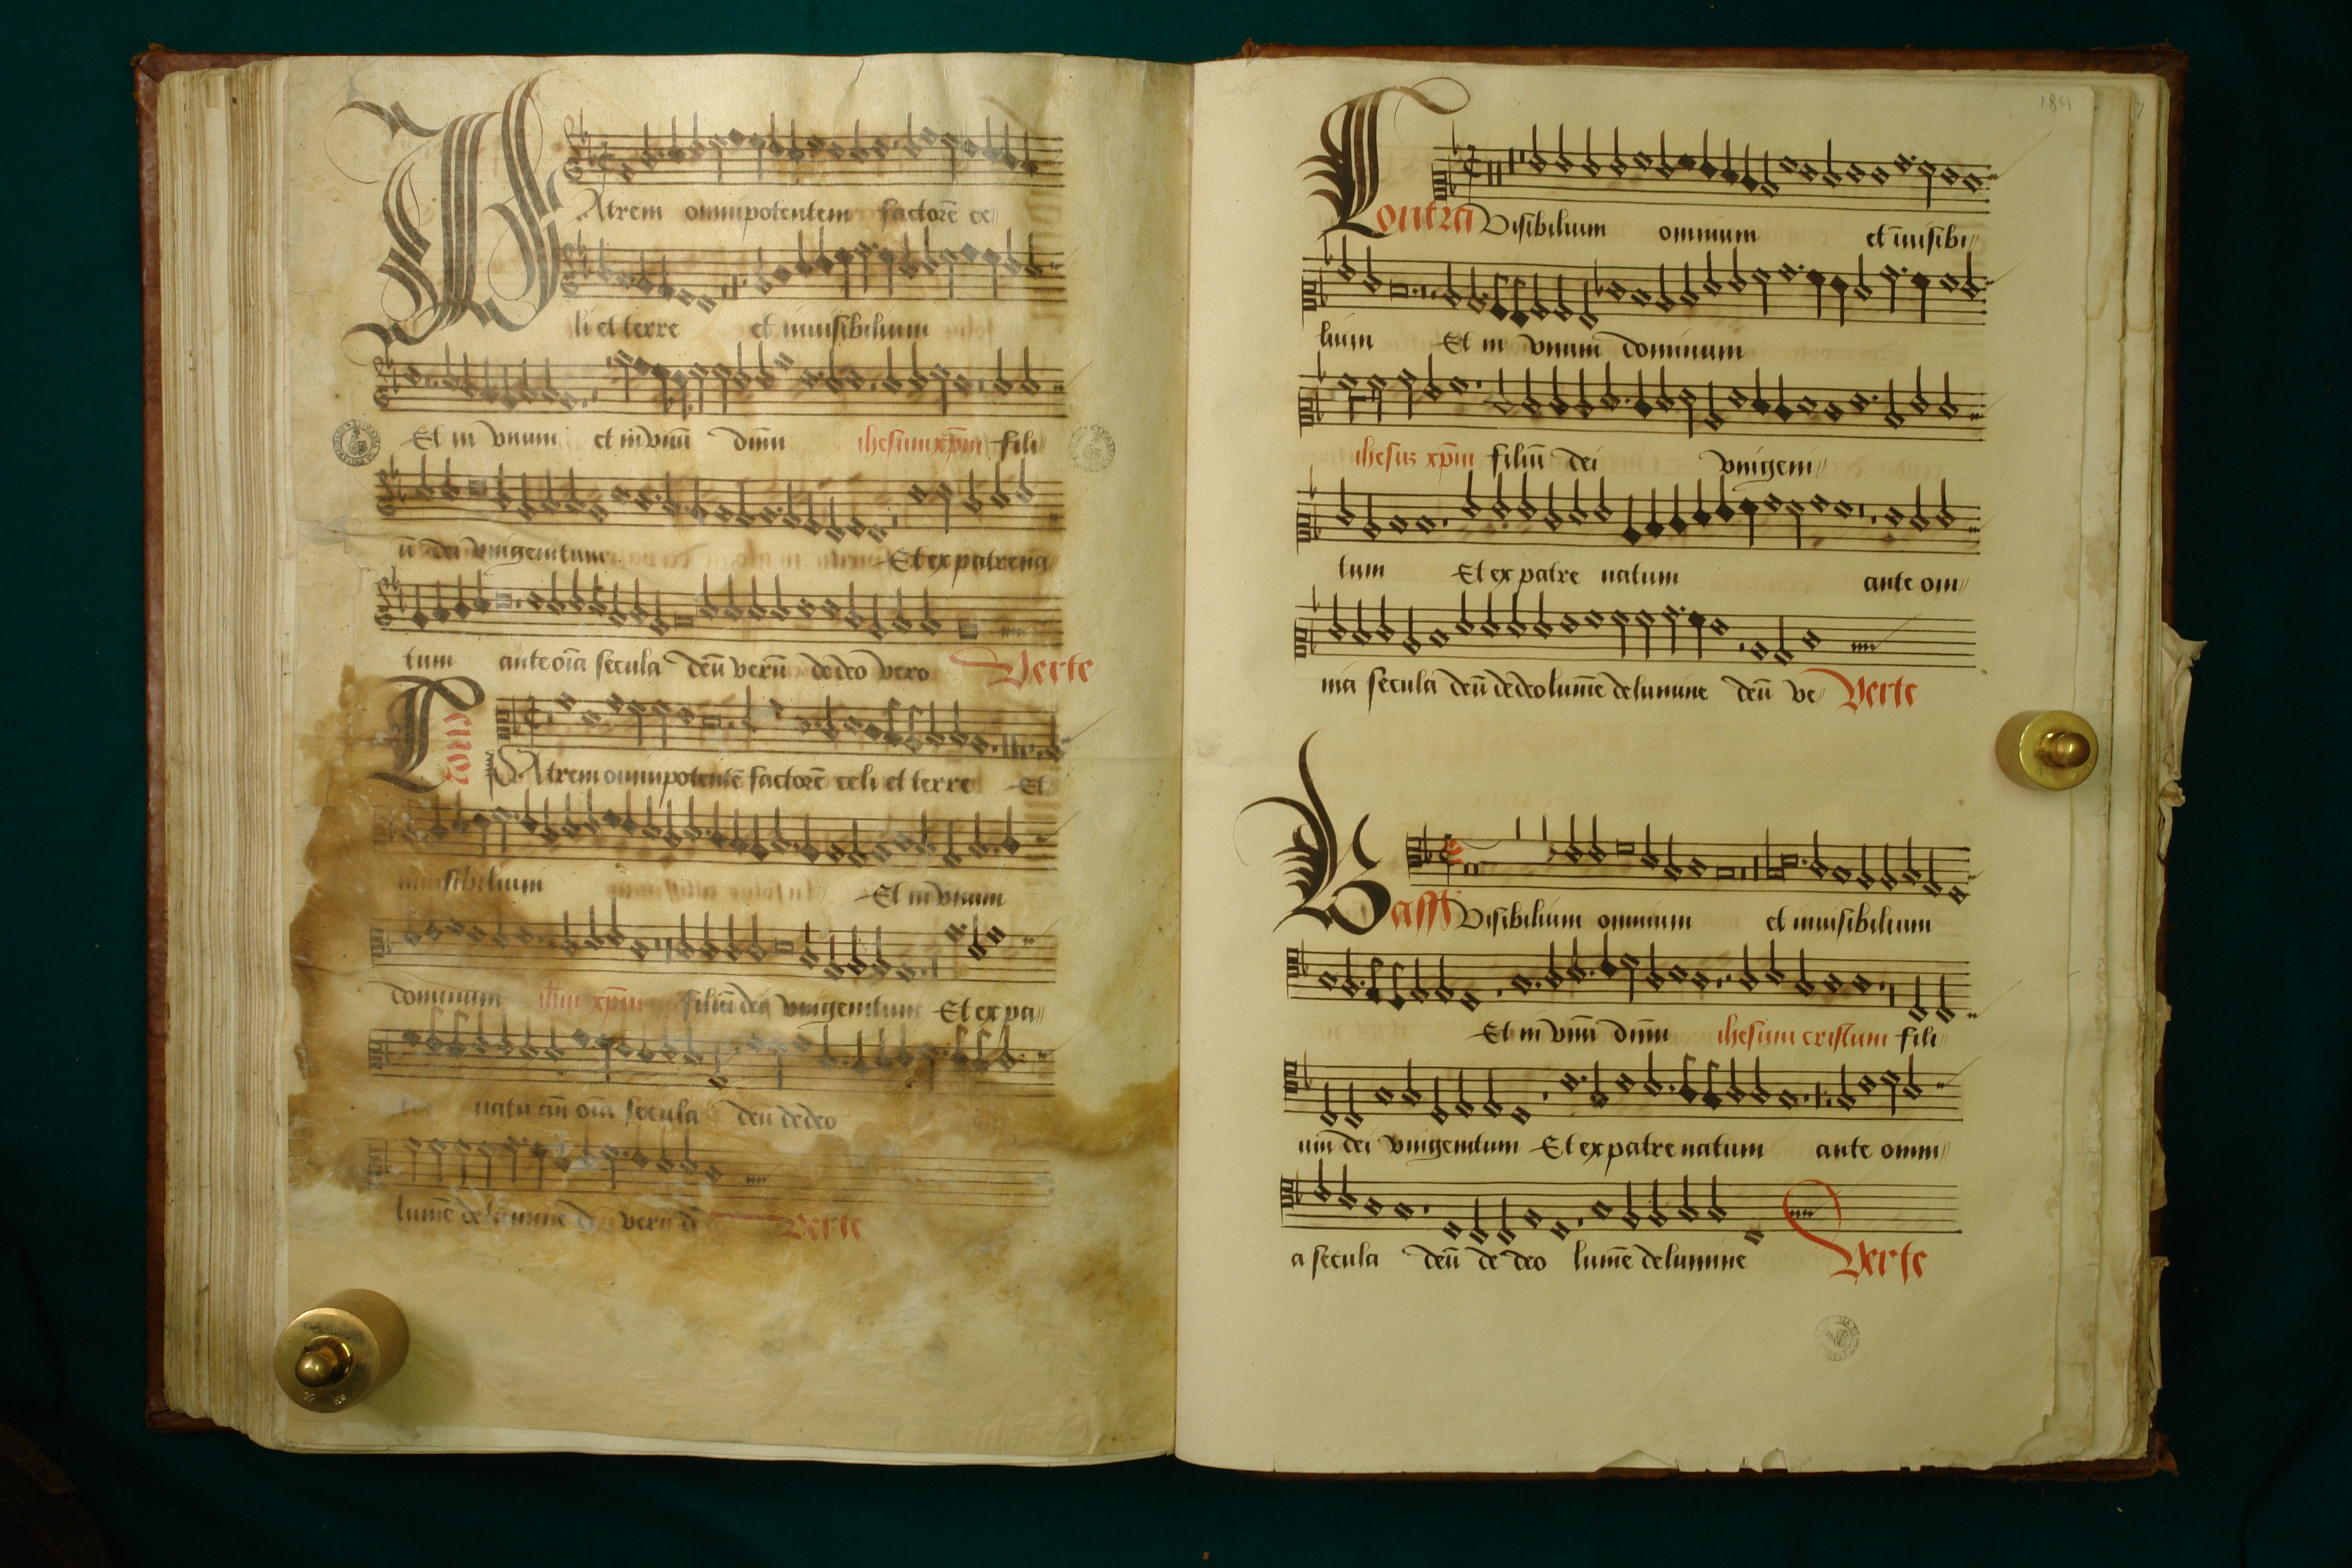 PAtrem omnipotentem factorē ce
li et terre et inuisibilium
Et in vnum et in vnū dnm ihesum xp̄m fili
ū dei vnigenitum Et ex patre na
tum ante oīa secula deū verū de deo vero Verte
Tenor
PAtrem omnipotentē factorē celi et terre Et
inuisibilium Et in vnum
dominum ihm xp̄m filiū dei vnigenitum Et ex pa
tre natū an̄ oīa secula deū de deo
lumē de lumine verū Verte
1841
Contra Visibilium omnium et inuisibi
lium Et in vnum dominum
ihesuz xp̄m filiū dei vnigeni
tum Et ex patre natum ante om
nia secula deū de deo lumē de lumine deū ve Verte
Bassus Visibilium omnium et inuisibilium
Et in vnū dnm ihesum cristum fili
um dei vnigenitum Et ex patre natum ante omni
a secula deū de deo lumē de lumine Verte